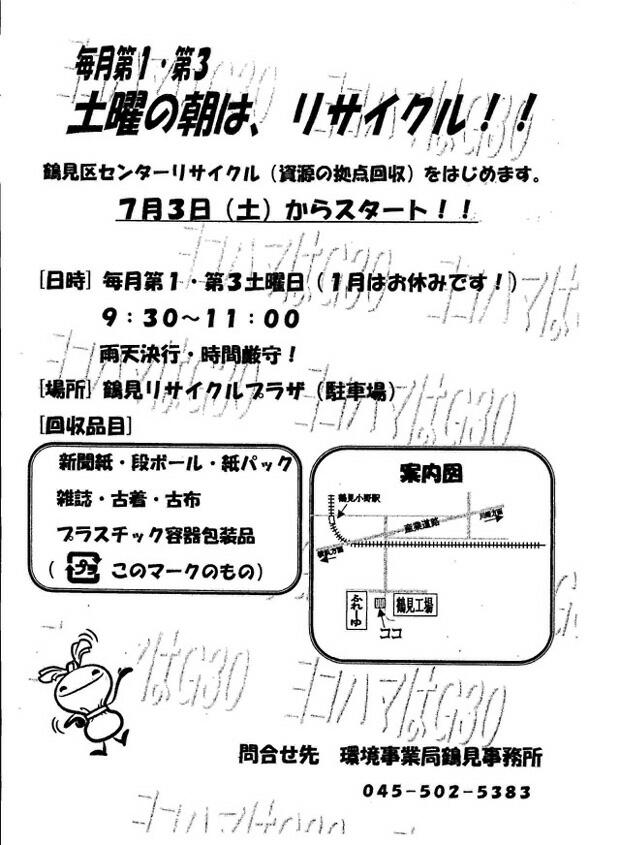 毎月第1・第3
土曜の朝は、リサイクル！！
鶴見区センターリサイクル（資源の拠点回収）をはじめます。
7月3日（土）からスタート！！
[日時] 毎月第1・第3土曜日（1月はお休みです！）
9：30～11：00
雨天決行・時間厳守！
[場所] 鶴見リサイクルプラザ（駐車場）
[回収品目]
新聞紙・段ボール・紙パック
雑誌・古着・古布
プラスチック容器包装品
（ プラ このマークのもの）
案内図
鶴見小野駅
産業道路
川崎方面
ふれーゆ
鶴見工場
ココ
ヨコハマはG30
ヨコハマはG30
ヨコハマはG30
ヨコハマはG30
ヨコハマはG30
ヨコハマはG30
はG30
ヨコハマはG30
問合せ先 環境事業局鶴見事務所
045-502-5383